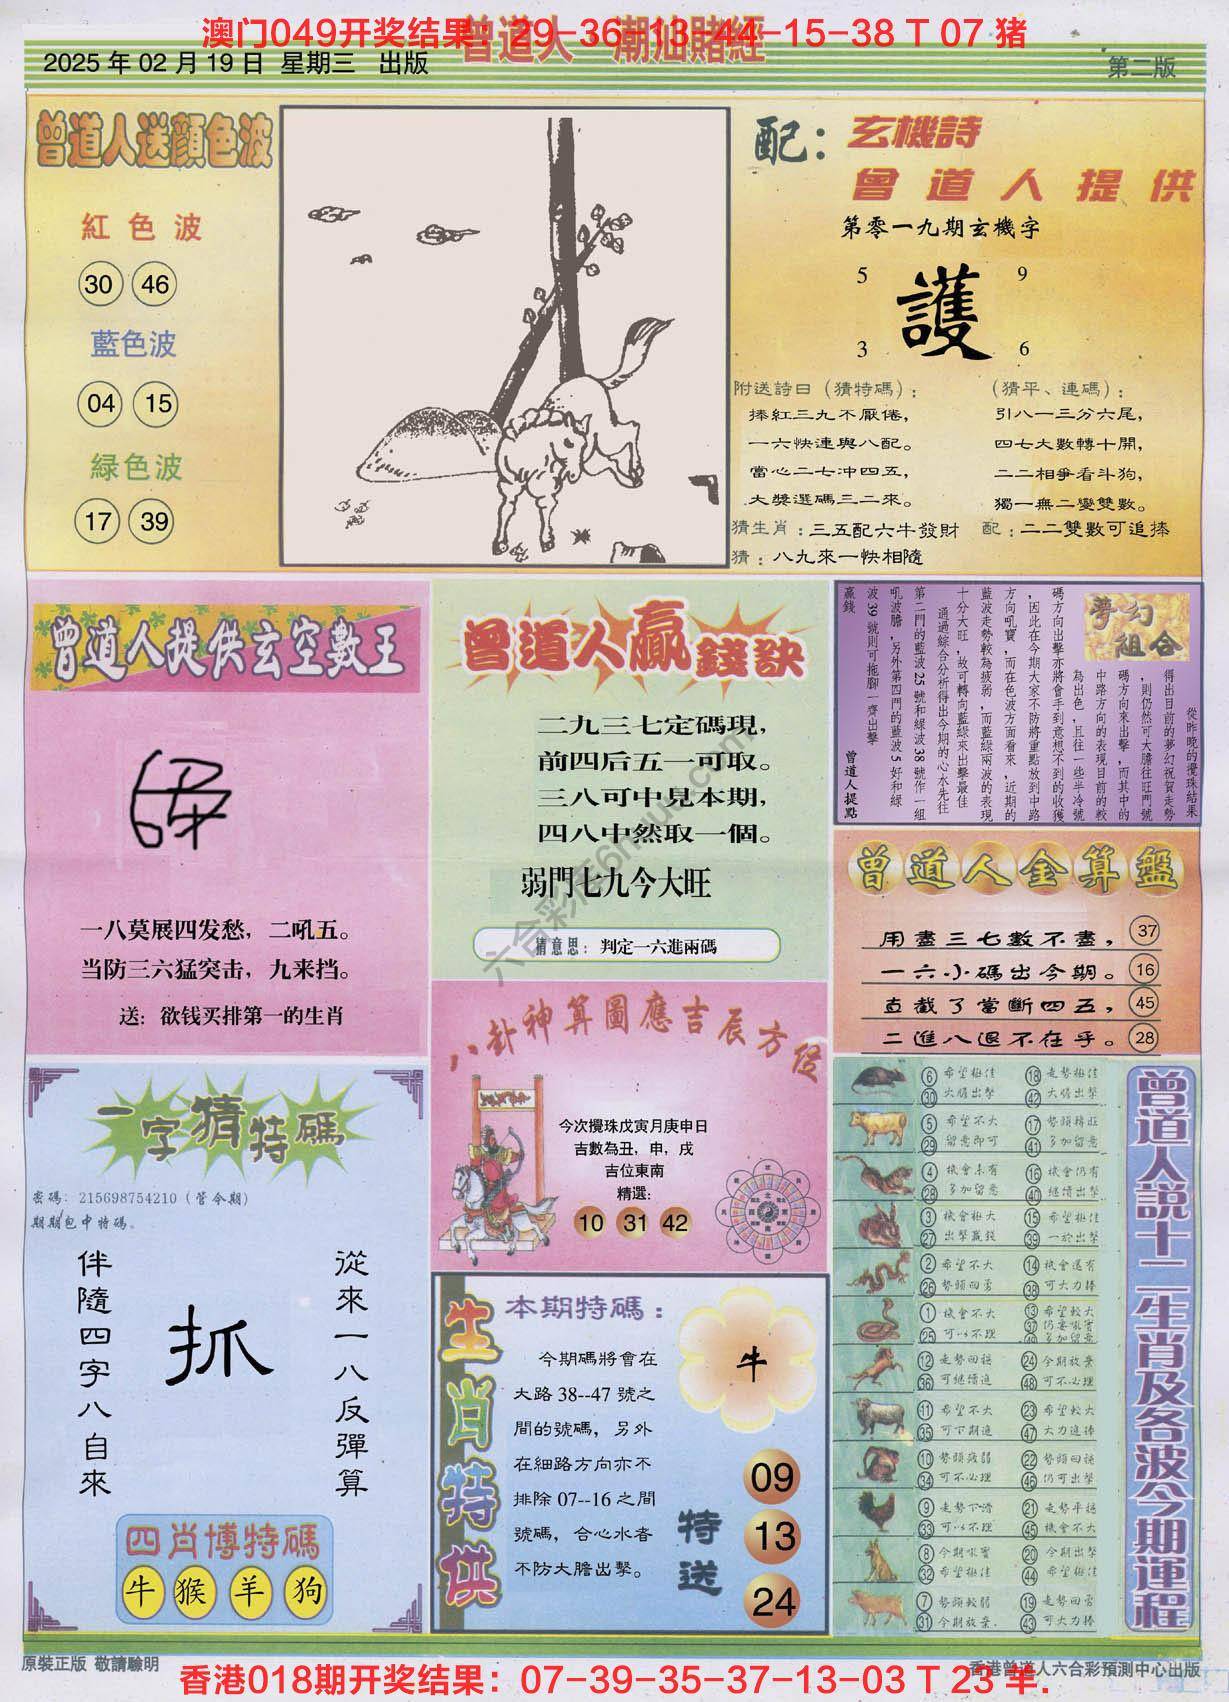 澳门049开奖结果：29-36-13-44-15-38 T 07 猪
曾道人 潮汕賭經
2025 年 02 月 19 日 星期三 出版
第二版
曾道人送顏色波
紅色波
30 46
藍色波
04 15
緑色波
17 39
配：
玄機詩
曾道人提供
第零一九期玄機字
5 9
護
3 6
附送詩曰（猜特碼）：
捧紅三九不厭倦，
一六快連與八配。
當心二七冲四五，
大獎選碼三二來。
（猜平、連碼）：
引八一三分六尾，
四七大數轉十開，
二二相爭看斗狗，
獨一無二變雙數。
猜生肖：三五配六牛發財
配：二二雙數可追捧
猜：八九來一快相隨
曾道人提供玄空數王
一八莫展四发愁，二吼五。
当防三六猛突击，九来挡。
送：欲钱买排第一的生肖
曾道人贏錢訣
二九三七定碼現，
前四后五一可取。
三八可中見本期，
四八中然取一個。
弱門七九今大旺
猜意思：判定一六進兩碼
夢幻組合
從昨晚的攪珠結果
得出目前的夢幻祝賀走勢
，則仍然可大膽往旺門號
碼方向來出擊，而其中的
中路方向的表現目前的較
為出色，且往一些半冷號
碼方向出擊亦將會手到意想不到的收獲
，因此在今期大家不防將重點放到中路
方向吼實，而在色波方面看來，近期的
藍波走勢較為疲弱，而藍綠兩波的表現
十分大旺，故可轉向藍綠來出擊最佳
通過綜合分析得出今期的心水先往
第二門的藍波25號和綠波38號作一組
吼波膽，另外第四門的藍波5好和綠
波39號則可拖腳一齊出擊
贏錢
曾道人提點
曾道人金算盤
用盡三七數不盡， 37
一六小碼出今期。 16
直截了當斷四五， 45
二進八退不在乎。 28
八卦神算圖應吉辰方位
今次攪珠戊寅月庚申日
吉數為丑，申，戌
吉位東南
精選：
10 31 42
一字猜特碼
密碼：215698754210（管今期）
期期包中特碼。
伴隨四字八自來
抓
從來一八反彈算
四肖博特碼
牛 猴 羊 狗
生肖特供
本期特碼：
今期碼將會在
大路 38--47 號之
間的號碼，另外
在細路方向亦不
排除 07--16 之間
號碼，合心水者
不防大膽出擊。
牛
特送
09
13
24
6 希望極佳 18 走勢極佳
30 大膽出擊 42 大膽出擊
5 希望不大 17 勢頭積旺
29 留意即可 41 多加留意
4 機會未有 16 機會仍有
28 多加留意 40 繼續出擊
3 機會極大 15 希望極佳
27 出擊贏錢 39 一於出擊
2 希望不大 14 機會還有
26 勢頭回勇 38 可大力捧
1 機會不大 13 希望較大
25 可以不理 37
49 多加留意
12 走勢回穩 24 今期放棄
36 可繼續追 48 可不必理
11 希望不大 23 希望較大
35 可下期追 47 大力追捧
10 勢頭疲弱 22 勢頭回穩
34 可不必理 46 仍可出擊
9 走勢下滑 21 走勢平穩
33 可以不理 45 機會不大
8 今期吼實 20 今期出擊
32 希望極佳 44 希望極佳
7 勢頭較弱 19 走勢回勇
31 今期放棄. 43 可大力捧
曾道人説十二生肖及各波今期運程
六合彩库6huuu.com
原裝正版 敬請驗明
香港曾道人六合彩預測中心出版
香港018期开奖结果：07-39-35-37-13-03 T 23 羊.